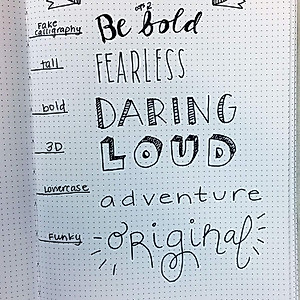 Fake Calligraphy Be bold
tall FEARLESS
bold DARING
3D LOUD
lowercase adventure
Funky original